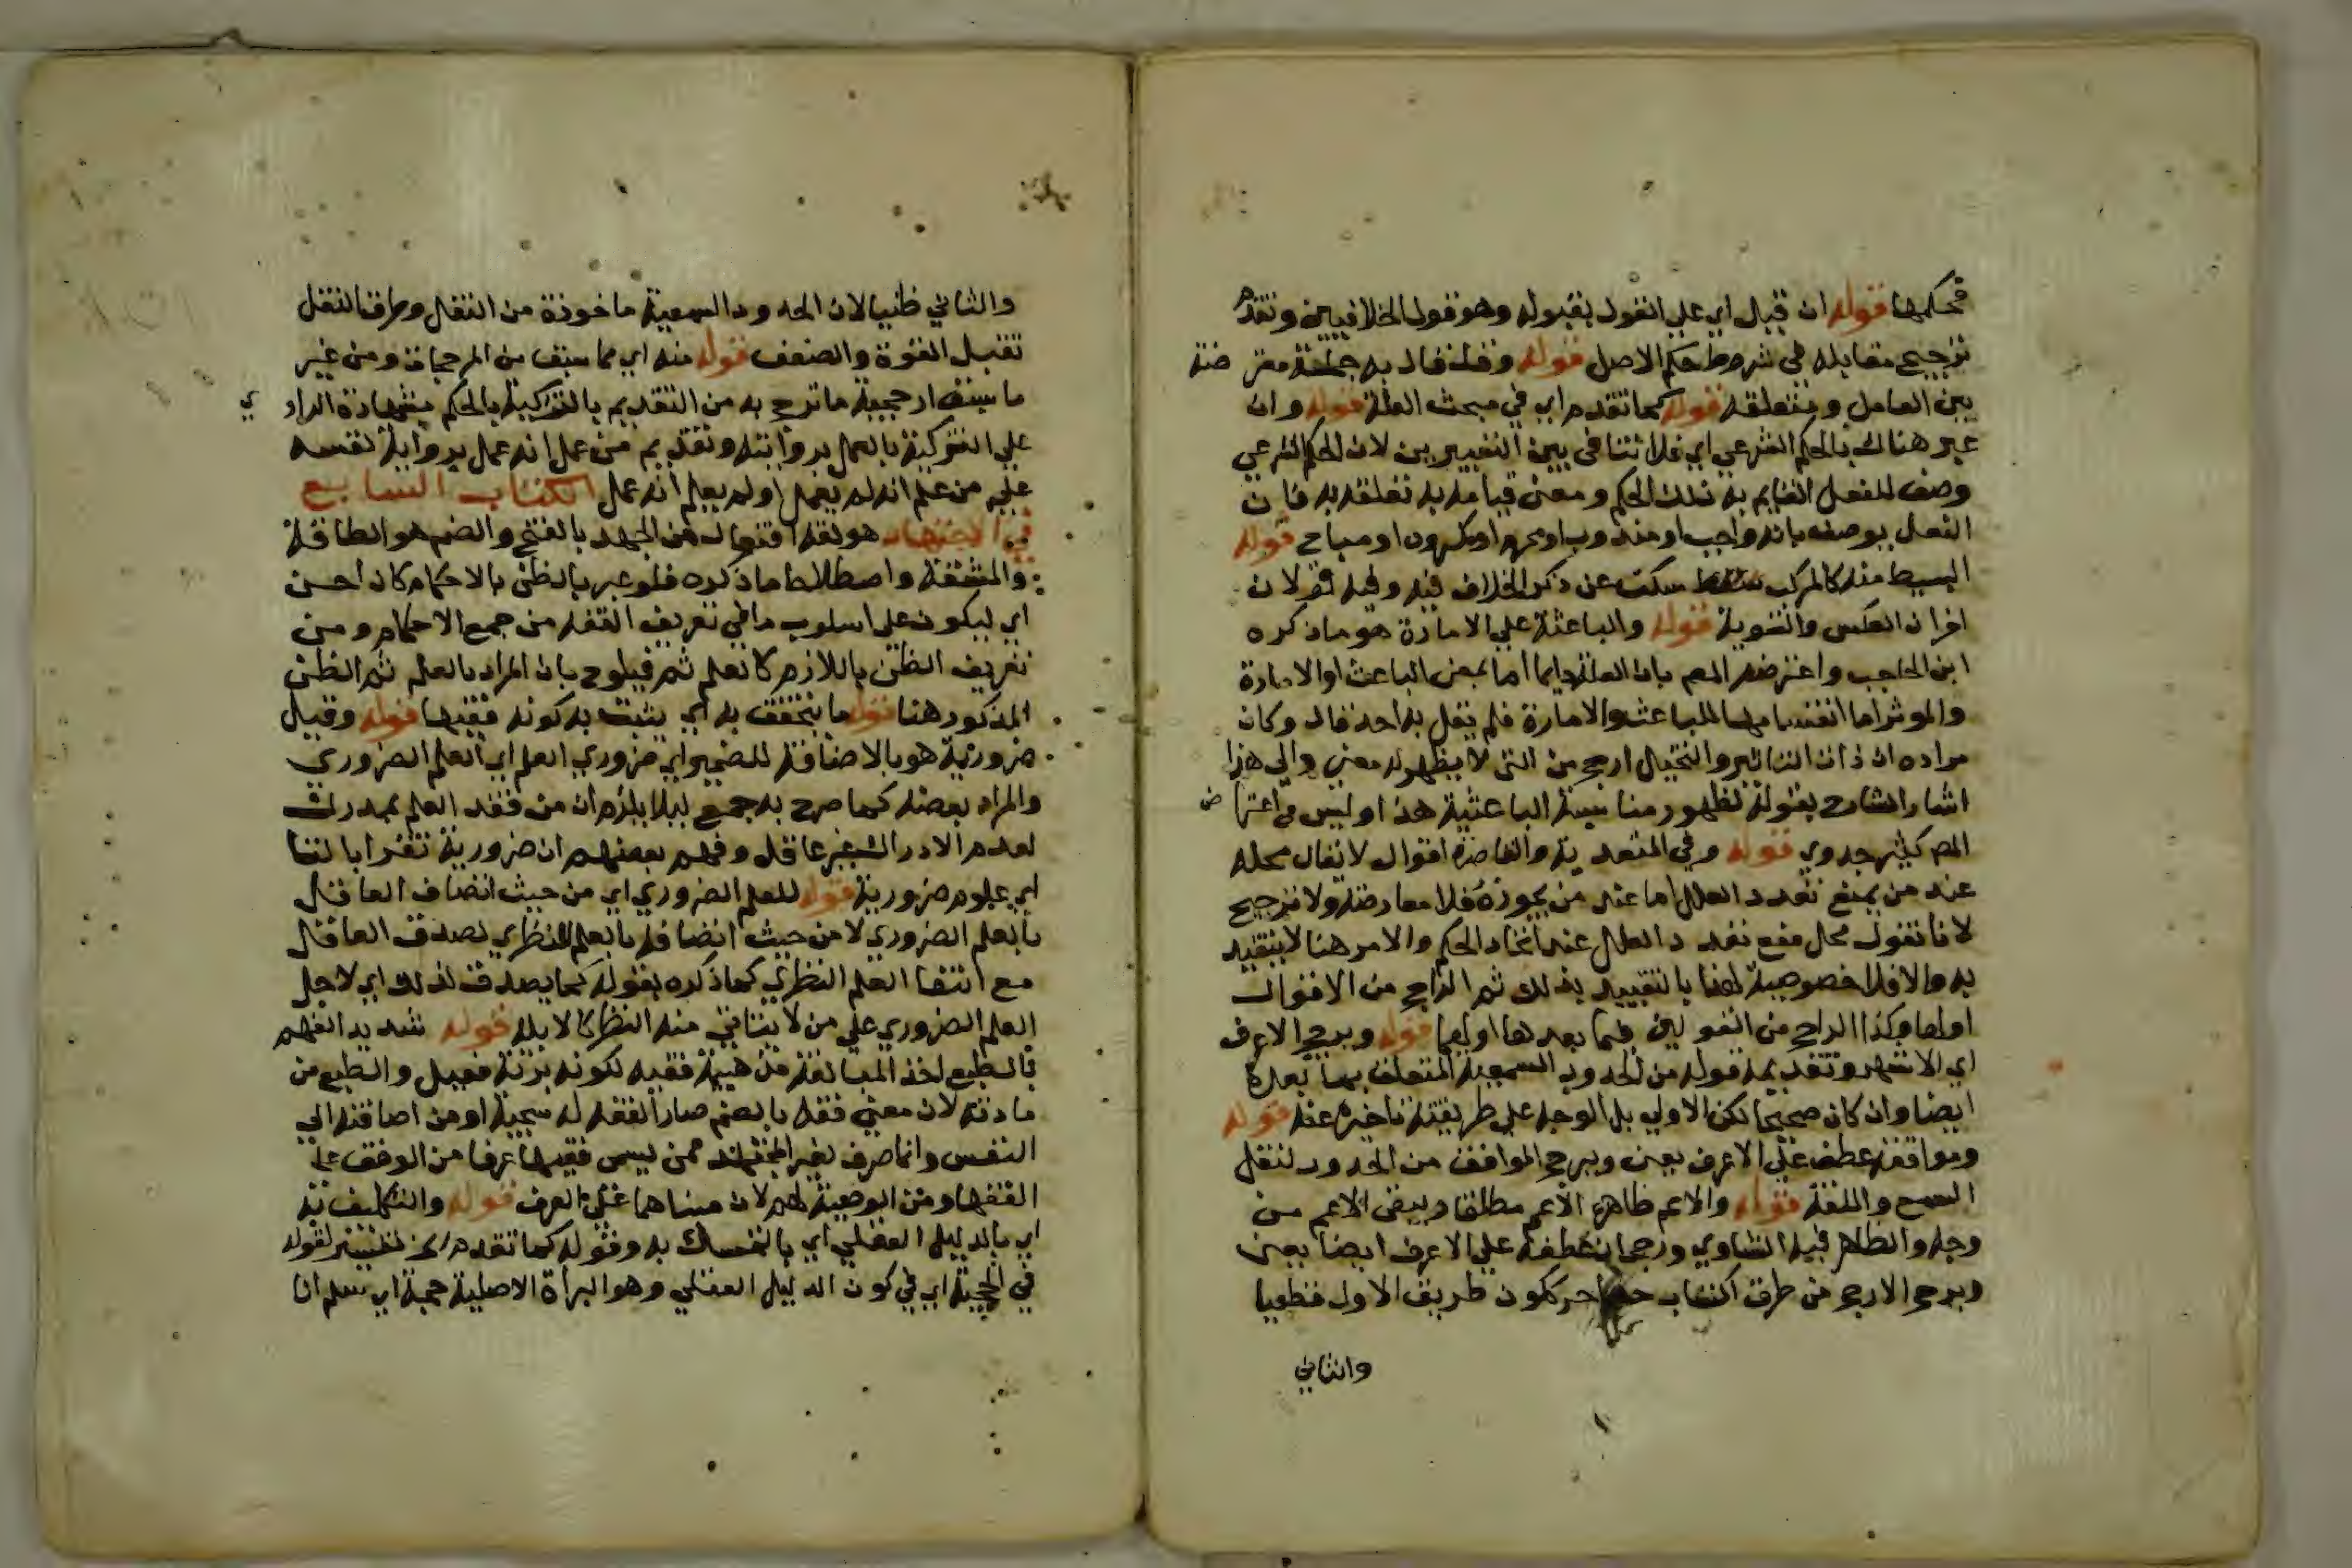 فحكمها قوله ان قبل اي علي القول بقبوله وهو قول الخلافيين وتقدم
ترجيح مقابله في شروط حكم الاصل قوله وقلنا قال به جملة معترضة
بين العامل ومتعلقه قوله كما تقدم اي في مبحث العلة قوله وان
عبر هناك بالحكم الشرعي اي فلا تنافي بين التعبيرين لان الحكم الشرعي
وصف للفعل القايم به ذلك الحكم ومعني قيامه به تعلقه به فان
الفعل يوصف بانه واجب او مندوب او محرم او مكروه او مباح قوله
البسيط منه كالمركب سكت عن ذكر الخلاف فيه وفيه قولان
اقران العكس والتسوية قوله والباعثة علي الامارة هو ما ذكره
ابن الحاجب واعترضه المص بان العلة دايما اما بمعني الباعث او الامارة
والموثر اما انقسامها للباعث والامارة فلم يقل به احد قال وكان
مراده ان ذات التاثير والتخيل ارجح من التي لا يظهر له معني والي هذا
اشار الشارح بقوله لظهور مناسبة الباعثية هذا وليس في اعتراض
المص كثير جدوي قوله وفي المتعدية والقاصرة اقوال لا يقال محله
عند من يمنع تعدد العلل اما عند من يجوزه فلا معارضة ولا ترجيح
لانا نقول محل منع تعدد العلل عند اتحاد الحكم والامر هنا لا يتقيد
به والا فلا خصوصية لهنا بالتقييد بذلك ثم الراجح من الاقوال
اولها وكذا الراجح من القولين فيما بعدها اولهما قوله ويرجح الاعرف
اي الاشهر وتقديمه قوله من الحدود السمعية المتعلق بما بعده
ايضا وان كان صحيحا لكن الاولي بل الوجه علي طريقته تاخيره عنه قوله
وموافقة عطف علي الاعرف يعني ويرجح الموافق من الحدود لنقل
السمع واللغة قوله والاعم ظاهره الاعم مطلقا وبقي الاعم من
وجه والظاهر فيه التساوي ورجحان عطفه علي الاعرف ايضا يعني
ويرجح الارجح من طرق اكتساب ككون طريق الاول قطعيا
والثاني
والثاني ظنيا لان الحدود السمعية ماخوذة من النقل وطرق النقل
تقبل القوة والضعف قوله منه اي مما سبق من المرجحات ومن غير
ما سبق ارجحية ما ترجح به من التقديم بالتزكية بالحكم بشهادة الراوي
علي التزكية بالعمل بروايته وتقديم من عمل انه عمل برواية نفسه
علي من علم انه لم يعمل او لم يعلم انه عمل الكتاب السابع
في الاجتهاد هو لغة افتعال من الجهد بالفتح والضم هو الطاقة
والمشقة واصطلاحا ما ذكره فلو عبر بالظن بالاحكام كان احسن
اي ليكون علي اسلوب ما في تعريف الفقه من جمع الاحكام ومن
تعريف الظن باللازم كالعلم ثم فيلوح بان المراد بالعلم ثم الظن
المذكور هنا قوله ما يتحقق به اي يثبت به كونه فقيها قوله وقيل
ضرورية هو بالاضافة للضمير اي ضروري العلم اي العلم الضروري
والمراد بعضه كما صرح به جمع ليلا يلزم ان من فقد العلم بمدرك
لعدم الادراك غير عاقل وفهم بعضهم ان ضرورية تقرا بالتا
اي علوم ضرورية قوله للعلم الضروري اي من حيث اتصاف العاقل
بالعلم الضروري لا من حيث اتصافه بالعلم النظري لصدق العاقل
مع انتفا العلم النظري كما ذكره بقوله كما يصدق لذلك اي لاجل
العلم الضروري علي من لا يتاتي منه النظر كالابله قوله شديد الفهم
بالطبع اخذ المبالغة من هيية فقيه لكونه بزنة فعيل والطبع من
مادته لان معني فقه بالضم صار الفقه له سجية او من اضافته الي
النفس وانما صرف لغير المجتهد ممن يسمي فقيها عرفا من الوقف علي
الفقها ومن الوصية لهم لان مبناهما علي العرف قوله والتكليف به
اي بالدليل العقلي اي بالتمسك به وقوله كما تقدم تفسير لقوله
في الحجية اي في كون الدليل العقلي وهو البراة الاصلية حجة اي نعلم انا